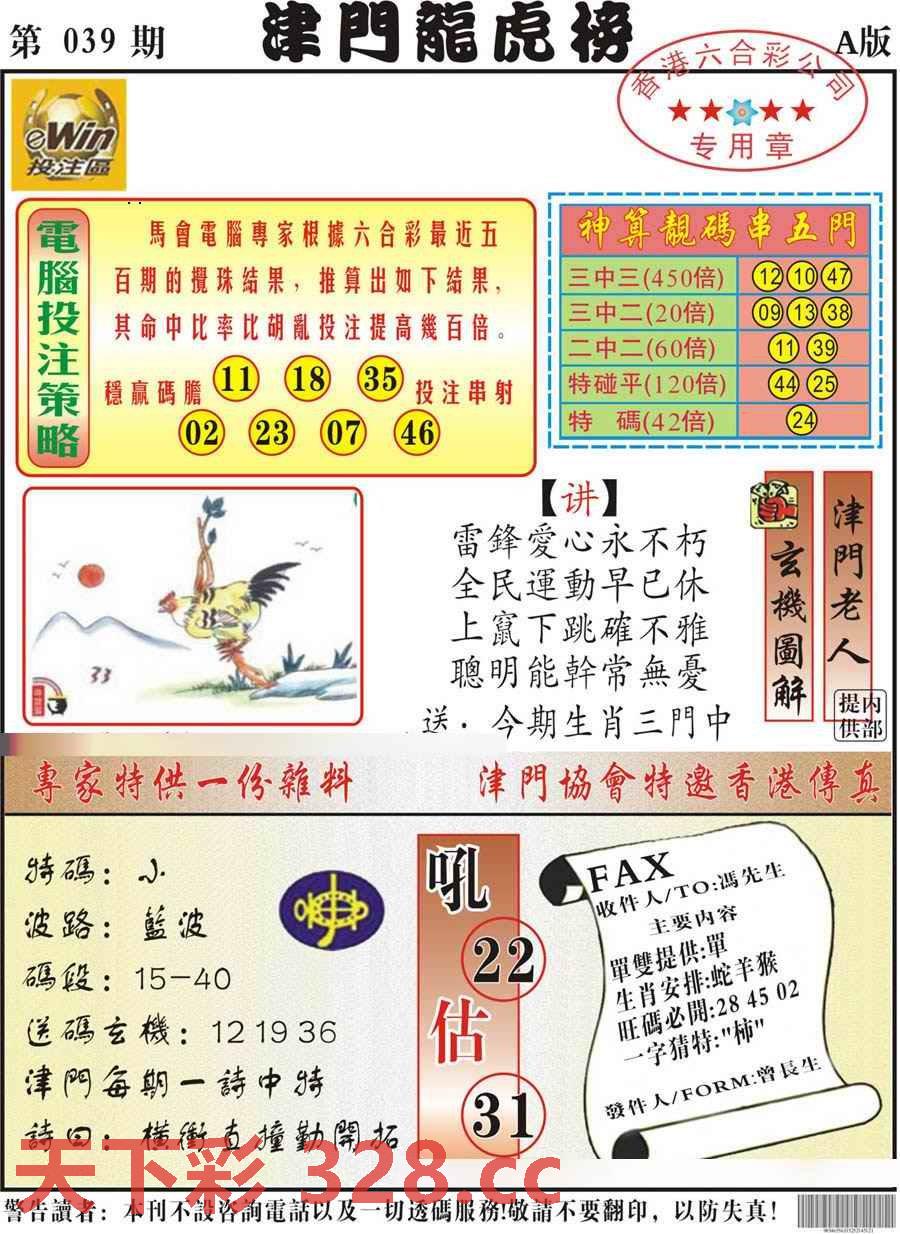 第 039 期
津門龍虎榜
A版
香港六合彩公司
专用章
eWin
投注區
電腦投注策略
馬會電腦專家根據六合彩最近五
百期的攪珠結果，推算出如下結果，
其命中比率比胡亂投注提高幾百倍。
穩贏碼膽 11 18 35 投注串射
02 23 07 46
神算靚碼串五門
三中三(450倍) 12 10 47
三中二(20倍) 09 13 38
二中二(60倍) 11 39
特碰平(120倍) 44 25
特 碼(42倍) 24
33
【讲】
雷鋒愛心永不朽
全民運動早已休
上竄下跳確不雅
聰明能幹常無憂
送．今期生肖三門中
玄機圖解
津門老人
内部提供
專家特供一份雜料
津門協會特邀香港傳真
特碼：小
波路：藍波
碼段：15-40
送碼玄機：12 19 36
津門每期一詩中特
詩曰：橫衝直撞勤開拓
吼
22
估
31
FAX
收件人/TO:馮先生
主要内容
單雙提供:單
生肖安排:蛇羊猴
旺碼必開:28 45 02
一字猜特:"柿"
發件人/FORM:曾長生
天下彩 328.cc
警告讀者：本刊不設咨詢電話以及一切透碼服務!敬請不要翻印，以防失真！